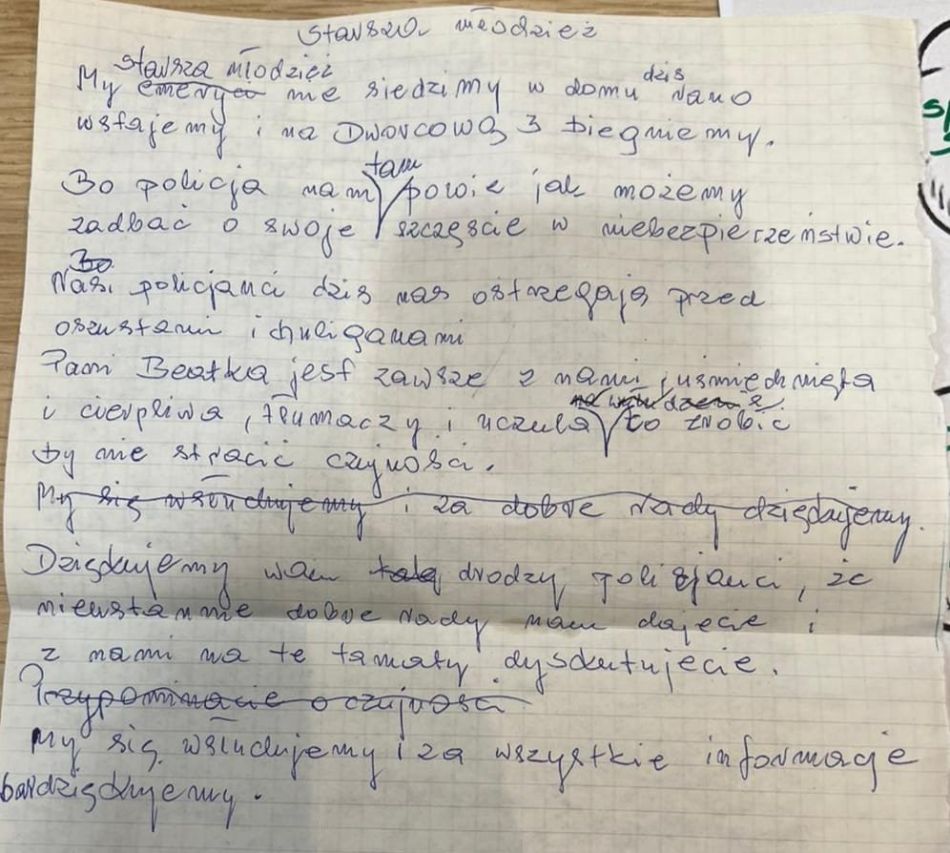 Starsza młodzież
Starsza młodzież dziś
My emeryci nie siedzimy w domu rano
wstajemy i na Dworcową 3 biegniemy.
tam
Bo policja nam powie jak możemy
zadbać o swoje szczęście w niebezpieczeństwie.
Bo
Nasi policjanci dziś nas ostrzegają przed
oszustami i chuliganami
Pani Beatka jest zawsze z nami, uśmiechnięta
i cierpliwa, tłumaczy i uczula co zrobić
by nie stracić czujności.
My się wsłuchujemy i za dobre rady dziękujemy.
Dziękujemy wam drodzy policjanci, że
nieustannie dobre rady nam dajecie i
z nami na te tematy dyskutujecie.
Przypominacie o czujności
My się wsłuchujemy i za wszystkie informacje
bardzo dziękujemy.